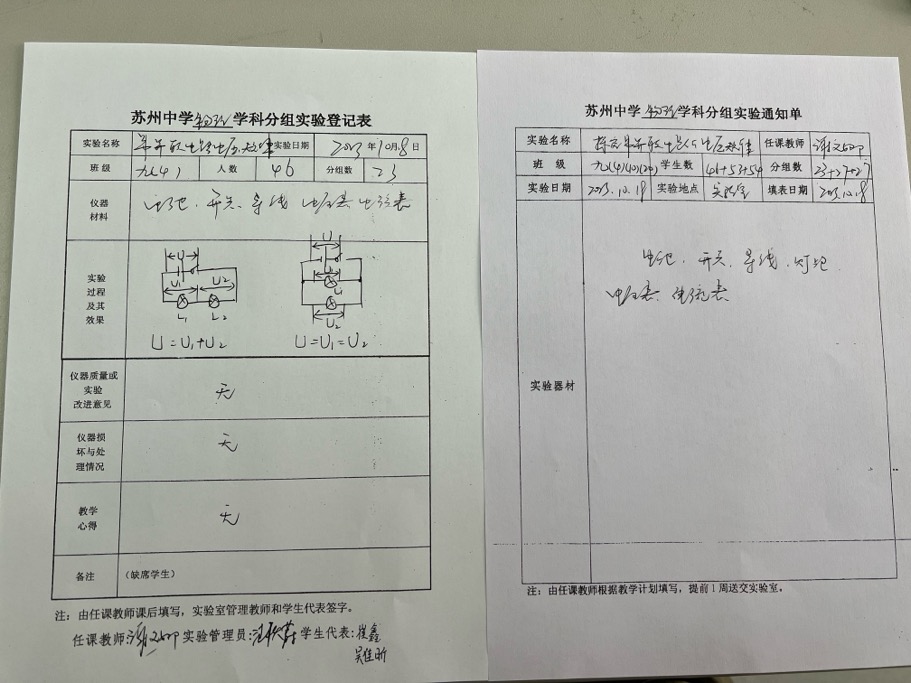 苏州中学 物理 学科分组实验登记表
实验名称 串并联电路电压规律 实验日期 2023年10月18日
班级 九(4) 人数 46 分组数 23
仪器材料 电池、开关、导线 电压表 电流表
实验过程及其效果
U
U1 U2
L1 L2
U=U1+U2
U
L1
U2
U=U1=U2
仪器质量或实验改进意见 无
仪器损坏与处理情况 无
教学心得 无
备注 (缺席学生)
注：由任课教师课后填写，实验室管理教师和学生代表签字。
任课教师: 实验管理员: 学生代表:崔鑫
吴佳昕
苏州中学 物理 学科分组实验通知单
实验名称 探究串并联电路电压规律 任课教师
班级 九(4)(10)(2) 学生数 46+53+54 分组数 23+27+27
实验日期 2023.10.18 实验地点 实验室 填表日期 2023.10.8
实验器材
电池、开关、导线、灯泡
电压表、电流表
注：由任课教师根据教学计划填写，提前1周送交实验室。